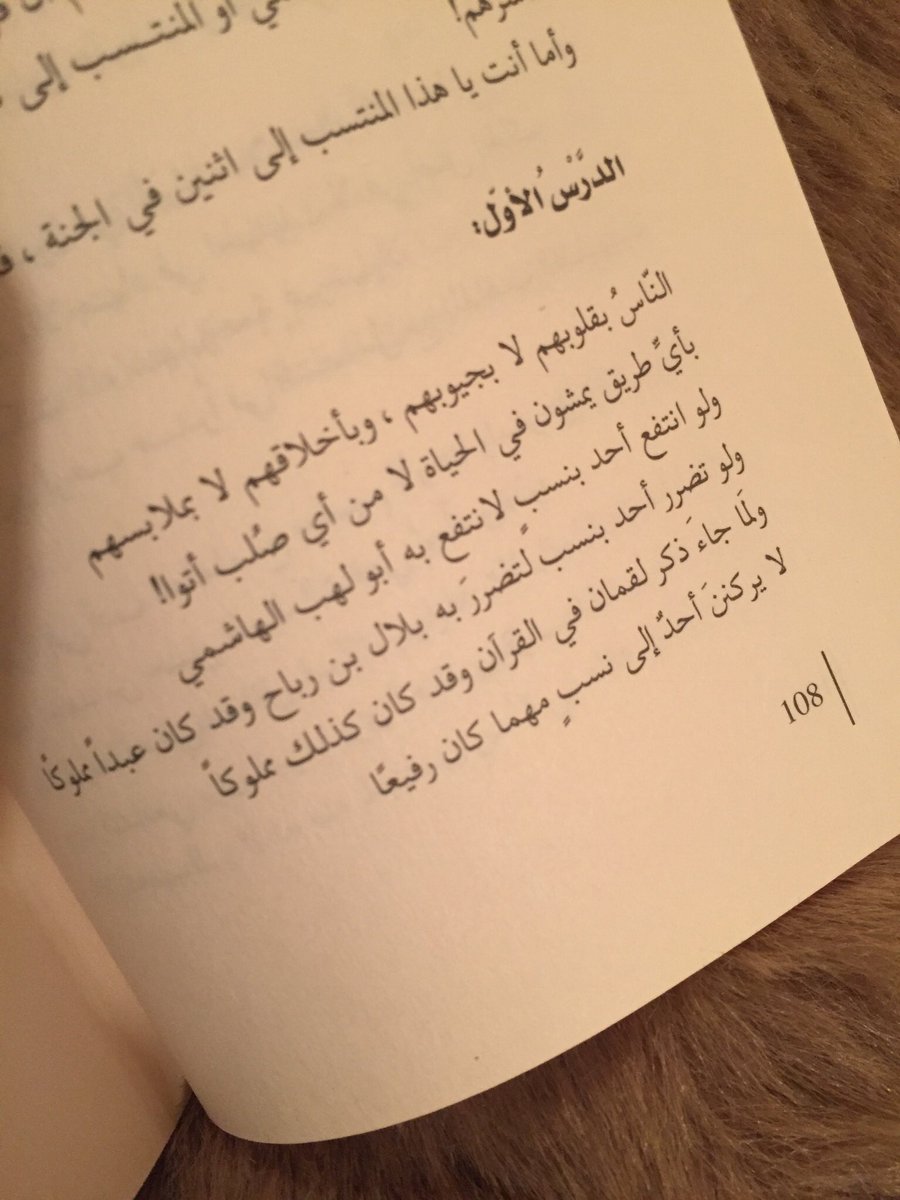 أو المنتسب إلى
وأما أنت يا هذا المنتسب إلى اثنين في الجنة ،
الدَّرْسُ الأوّل:
النّاسُ بقلوبهم لا بجيوبهم ، وبأخلاقهم لا بملابسهم
بأيِّ طريق يمشون في الحياة لا من أي صُلب أتوا!
ولو انتفع أحد بنسبٍ لانتفع به أبو لهب الهاشمي
ولو تضرر أحد بنسب لتضررَ به بلال بن رباح وقد كان عبداً مملوكاً
ولمَا جاءَ ذكر لقمان في القرآن وقد كان كذلك مملوكاً
لا يركننَ أحدٌ إلى نسبٍ مهما كان رفيعًا
108